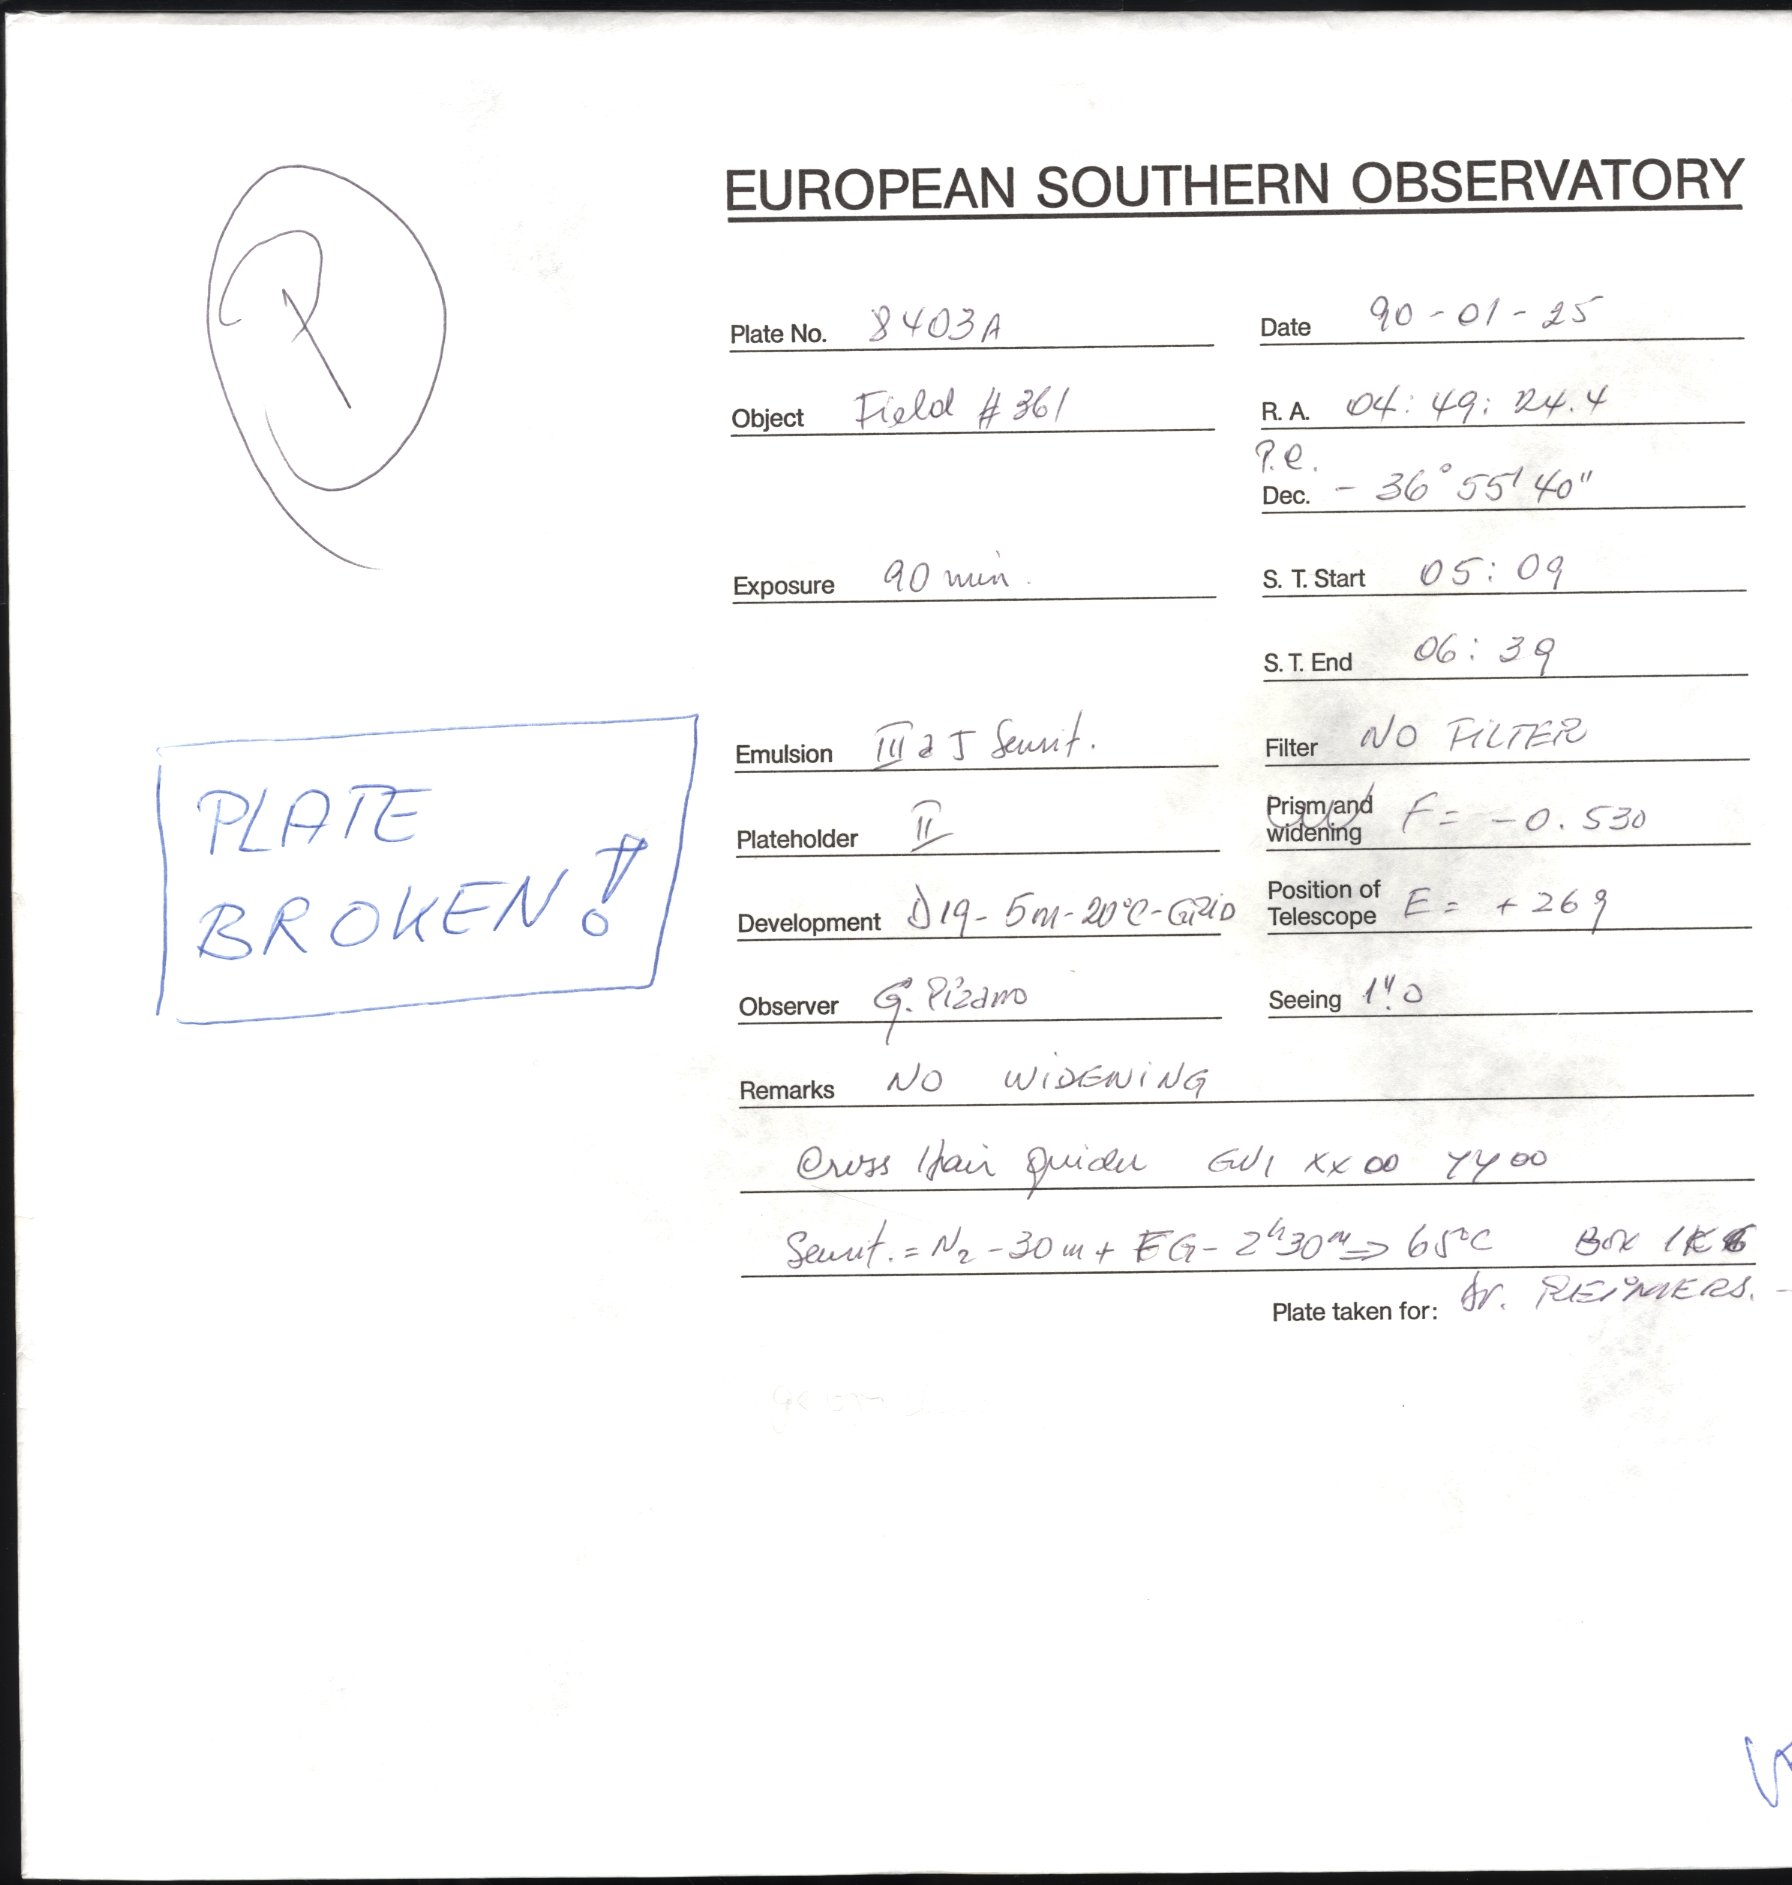 EUROPEAN SOUTHERN OBSERVATORY
Plate No. 8403A
Date 90-01-25
Object Field #361
R. A. 04: 49: 24.4
P.e.
Dec. - 36° 55' 40"
Exposure 90 min.
S. T. Start 05: 09
S. T. End 06: 39
PLATE
BROKEN!
Emulsion III a J Sensit.
Filter NO FILTER
Plateholder II
Prism and
widening F = -0.530
Development D19-5m-20°C-GRID
Position of
Telescope E = +269
Observer G. Pizarro
Seeing 1".0
Remarks NO WIDENING
Cross Hair guider GV1 XX 00 YY 00
Sensit. = N2 - 30 m + FG - 2h30m => 65°C Box
Plate taken for: Dr. REIMERS. -